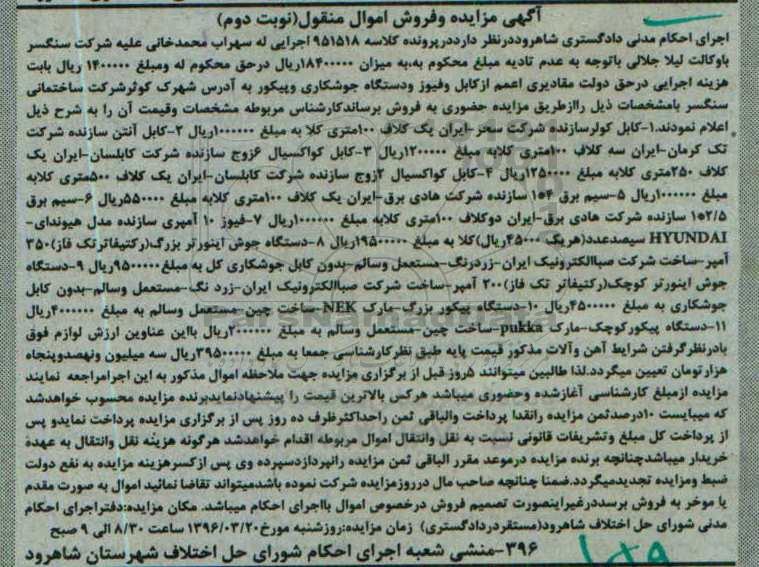 آگهی مزایده وفروش اموال منقول(نوبت دوم)
اجرای احکام مدنی دادگستری شاهروددرنظر دارددرپرونده کلاسه ۹۵۱۵۱۸ اجرایی له سهراب محمدخانی علیه شرکت سنگسر
باوکالت لیلا جلالی باتوجه به عدم تادیه مبلغ محکوم به،به میزان ۱۸۴۰۰۰۰۰ریال درحق محکوم له ومبلغ ۱۴۰۰۰۰۰ ریال بابت
هزینه اجرایی درحق دولت مقادیری اعمم ازکابل وفیوز ودستگاه جوشکاری وپیکور به آدرس شهرک کوثرشرکت ساختمانی
سنگسر بامشخصات ذیل راازطریق مزایده حضوری به فروش برساندکارشناس مربوطه مشخصات وقیمت آن را به شرح ذیل
اعلام نمودند.۱-کابل کولرسازنده شرکت سحر-ایران یک کلاف ۱۰۰متری کلا به مبلغ ۱۰۰۰۰۰۰ریال ۲-کابل آنتن سازنده شرکت
تک کرمان-ایران سه کلاف ۱۰۰متری کلابه مبلغ ۱۲۰۰۰۰۰ریال ۳-کابل کواکسیال ۶زوج سازنده شرکت کابلسان-ایران یک
کلاف ۲۵۰متری کلابه مبلغ ۱۲۵۰۰۰۰ریال ۴-کابل کواکسیال ۲زوج سازنده شرکت کابلسان-ایران یک کلاف ۵۰۰متری کلابه
مبلغ ۱۰۰۰۰۰۰ریال ۵-سیم برق ۱*۴ سازنده شرکت هادی برق-ایران یک کلاف ۱۰۰متری کلابه مبلغ ۵۵۰۰۰۰ریال ۶-سیم برق
۱*۲/۵ سازنده شرکت هادی برق-ایران دوکلاف ۱۰۰متری کلابه مبلغ ۱۰۰۰۰۰۰ریال ۷-فیوز ۱۰ آمپری سازنده مدل هیوندای-
HYUNDAI سیصدعدد(هریک ۴۵۰۰۰ریال)کلا به مبلغ ۱۹۵۰۰۰۰۰ریال ۸-دستگاه جوش اینورتر بزرگ(رکتیفاترتک فاز)۳۵۰
آمپر-ساخت شرکت صباالکترونیک ایران-زردرنگ-مستعمل وسالم-بدون کابل جوشکاری کل به مبلغ ۹۵۰۰۰۰۰ریال ۹-دستگاه
جوش اینورتر کوچک(رکتیفاتر تک فاز)۲۰۰ آمپر-ساخت شرکت صباالکترونیک ایران-زرد رنگ-مستعمل وسالم-بدون کابل
جوشکاری به مبلغ ۴۵۰۰۰۰۰ریال ۱۰-دستگاه پیکور بزرگ-مارک NEK-ساخت چین-مستعمل وسالم به مبلغ ۴۰۰۰۰۰۰ریال
۱۱-دستگاه پیکورکوچک-مارک pukka-ساخت چین-مستعمل وسالم به مبلغ ۲۰۰۰۰۰۰ریال بااین عناوین ارزش لوازم فوق
بادرنظرگرفتن شرایط آهن وآلات مذکور قیمت پایه طبق نظرکارشناسی جمعا به مبلغ ۳۹۵۰۰۰۰۰ریال سه میلیون ونهصدوپنجاه
هزارتومان تعیین میگردد.لذا طالبین میتوانند ۵روز قبل از برگزاری مزایده جهت ملاحظه اموال مذکور به این اجرامراجعه نمایند
مزایده ازمبلغ کارشناسی آغازشده وحضوری میباشد هرکس بالاترین قیمت را پیشنهادنمایدبرنده مزایده محسوب خواهدشد
که میبایست ۱۰درصدثمن مزایده رانقدا پرداخت والباقی ثمن راحداکثرظرف ده روز پس از برگزاری مزایده پرداخت نمایدو پس
از پرداخت کل مبلغ وتشریفات قانونی نسبت به نقل وانتقال اموال مربوطه اقدام خواهدشد هرگونه هزینه نقل وانتقال به عهدة
خریدار میباشدچنانچه برنده مزایده درموعد مقرر الباقی ثمن مزایده رانپردازدسپرده وی پس ازکسرهزینه مزایده به نفع دولت
ضبط ومزایده تجدیدمیگردد.ضمنا چنانچه صاحب مال درروزمزایده شرکت نموده باشدمیتواند تقاضا نمائید اموال به صورت مقدم
یا موخر به فروش برسددرغیراینصورت تصمیم فروش درخصوص اموال بااجرای احکام میباشد. مکان مزایده:دفتراجرای احکام
مدنی شورای حل اختلاف شاهرود(مستقردردادگستری) زمان مزایده:روزشنبه مورخ۱۳۹۶/۰۳/۲۰ ساعت ۸/۳۰ الی ۹ صبح
۳۹۶-منشی شعبه اجرای احکام شورای حل اختلاف شهرستان شاهرود